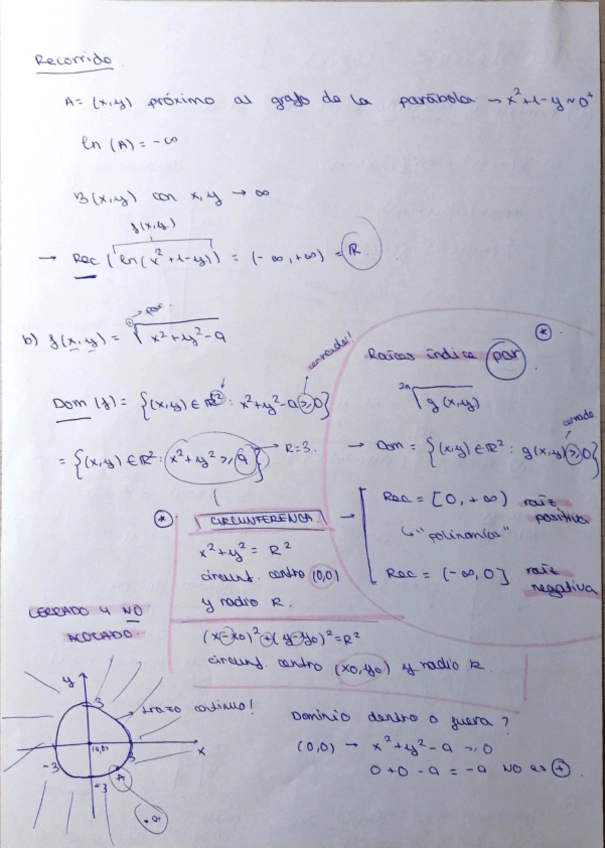 Recorrido
A = (x,y) próximo al grafo de la parábola → x²+1-y ~ 0⁺
ln (A) = -∞
B(x,y) con x,y → ∞
f(x,y)
→ Rec (ln(x²+1-y)) = (-∞,+∞) = ℝ
par
b) f(x,y) = √x²+y²-9
cerrado!
Dom (f) = {(x,y) ∈ ℝ² : x²+y²-9 ≥ 0}
= {(x,y) ∈ ℝ² : x²+y² ≥ 9} → R=3.
* Raíces índice par
²ⁿ√g(x,y)
cerrado
→ Dom = {(x,y) ∈ ℝ² : g(x,y) ≥ 0}
→ Rec = [0, +∞) raíz positiva
↳ "polinomios"
Rec = (-∞, 0] raíz negativa
* CIRCUNFERENCIA.
x²+y² = R²
circunf. centro (0,0)
y radio R.
(x-x0)²+(y-y0)²=R²
circunf. centro (x0,y0) y radio R
CERRADO Y NO
ACOTADO.
y
3
trazo continuo!
(0,0)
x
-3
3
-3
A
Dominio dentro o fuera?
(0,0) → x²+y²-9 ≥ 0
0+0-9 = -9 NO es +